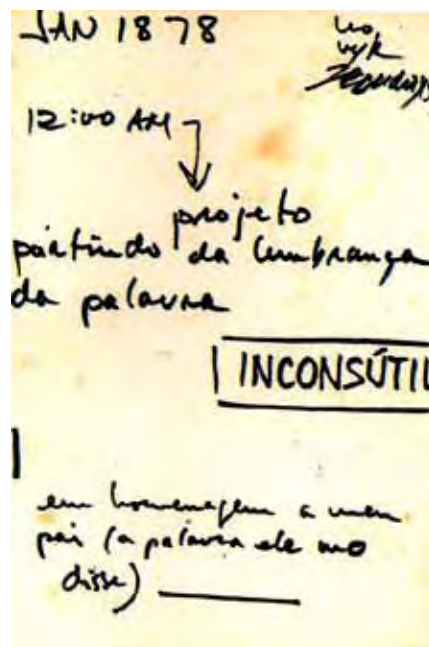 JAN 1878
12:00 AM
projeto
partindo da lembrança
da palavra
INCONSÚTIL
em homenagem a meu
pai (a palavra ele me
disse)